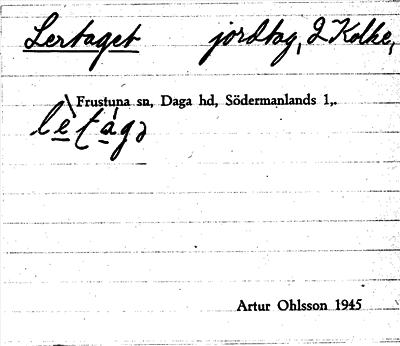 Lertaget jordtag, 2 Kolke,
Frustuna sn, Daga hd, Södermanlands l.
Artur Ohlsson 1945